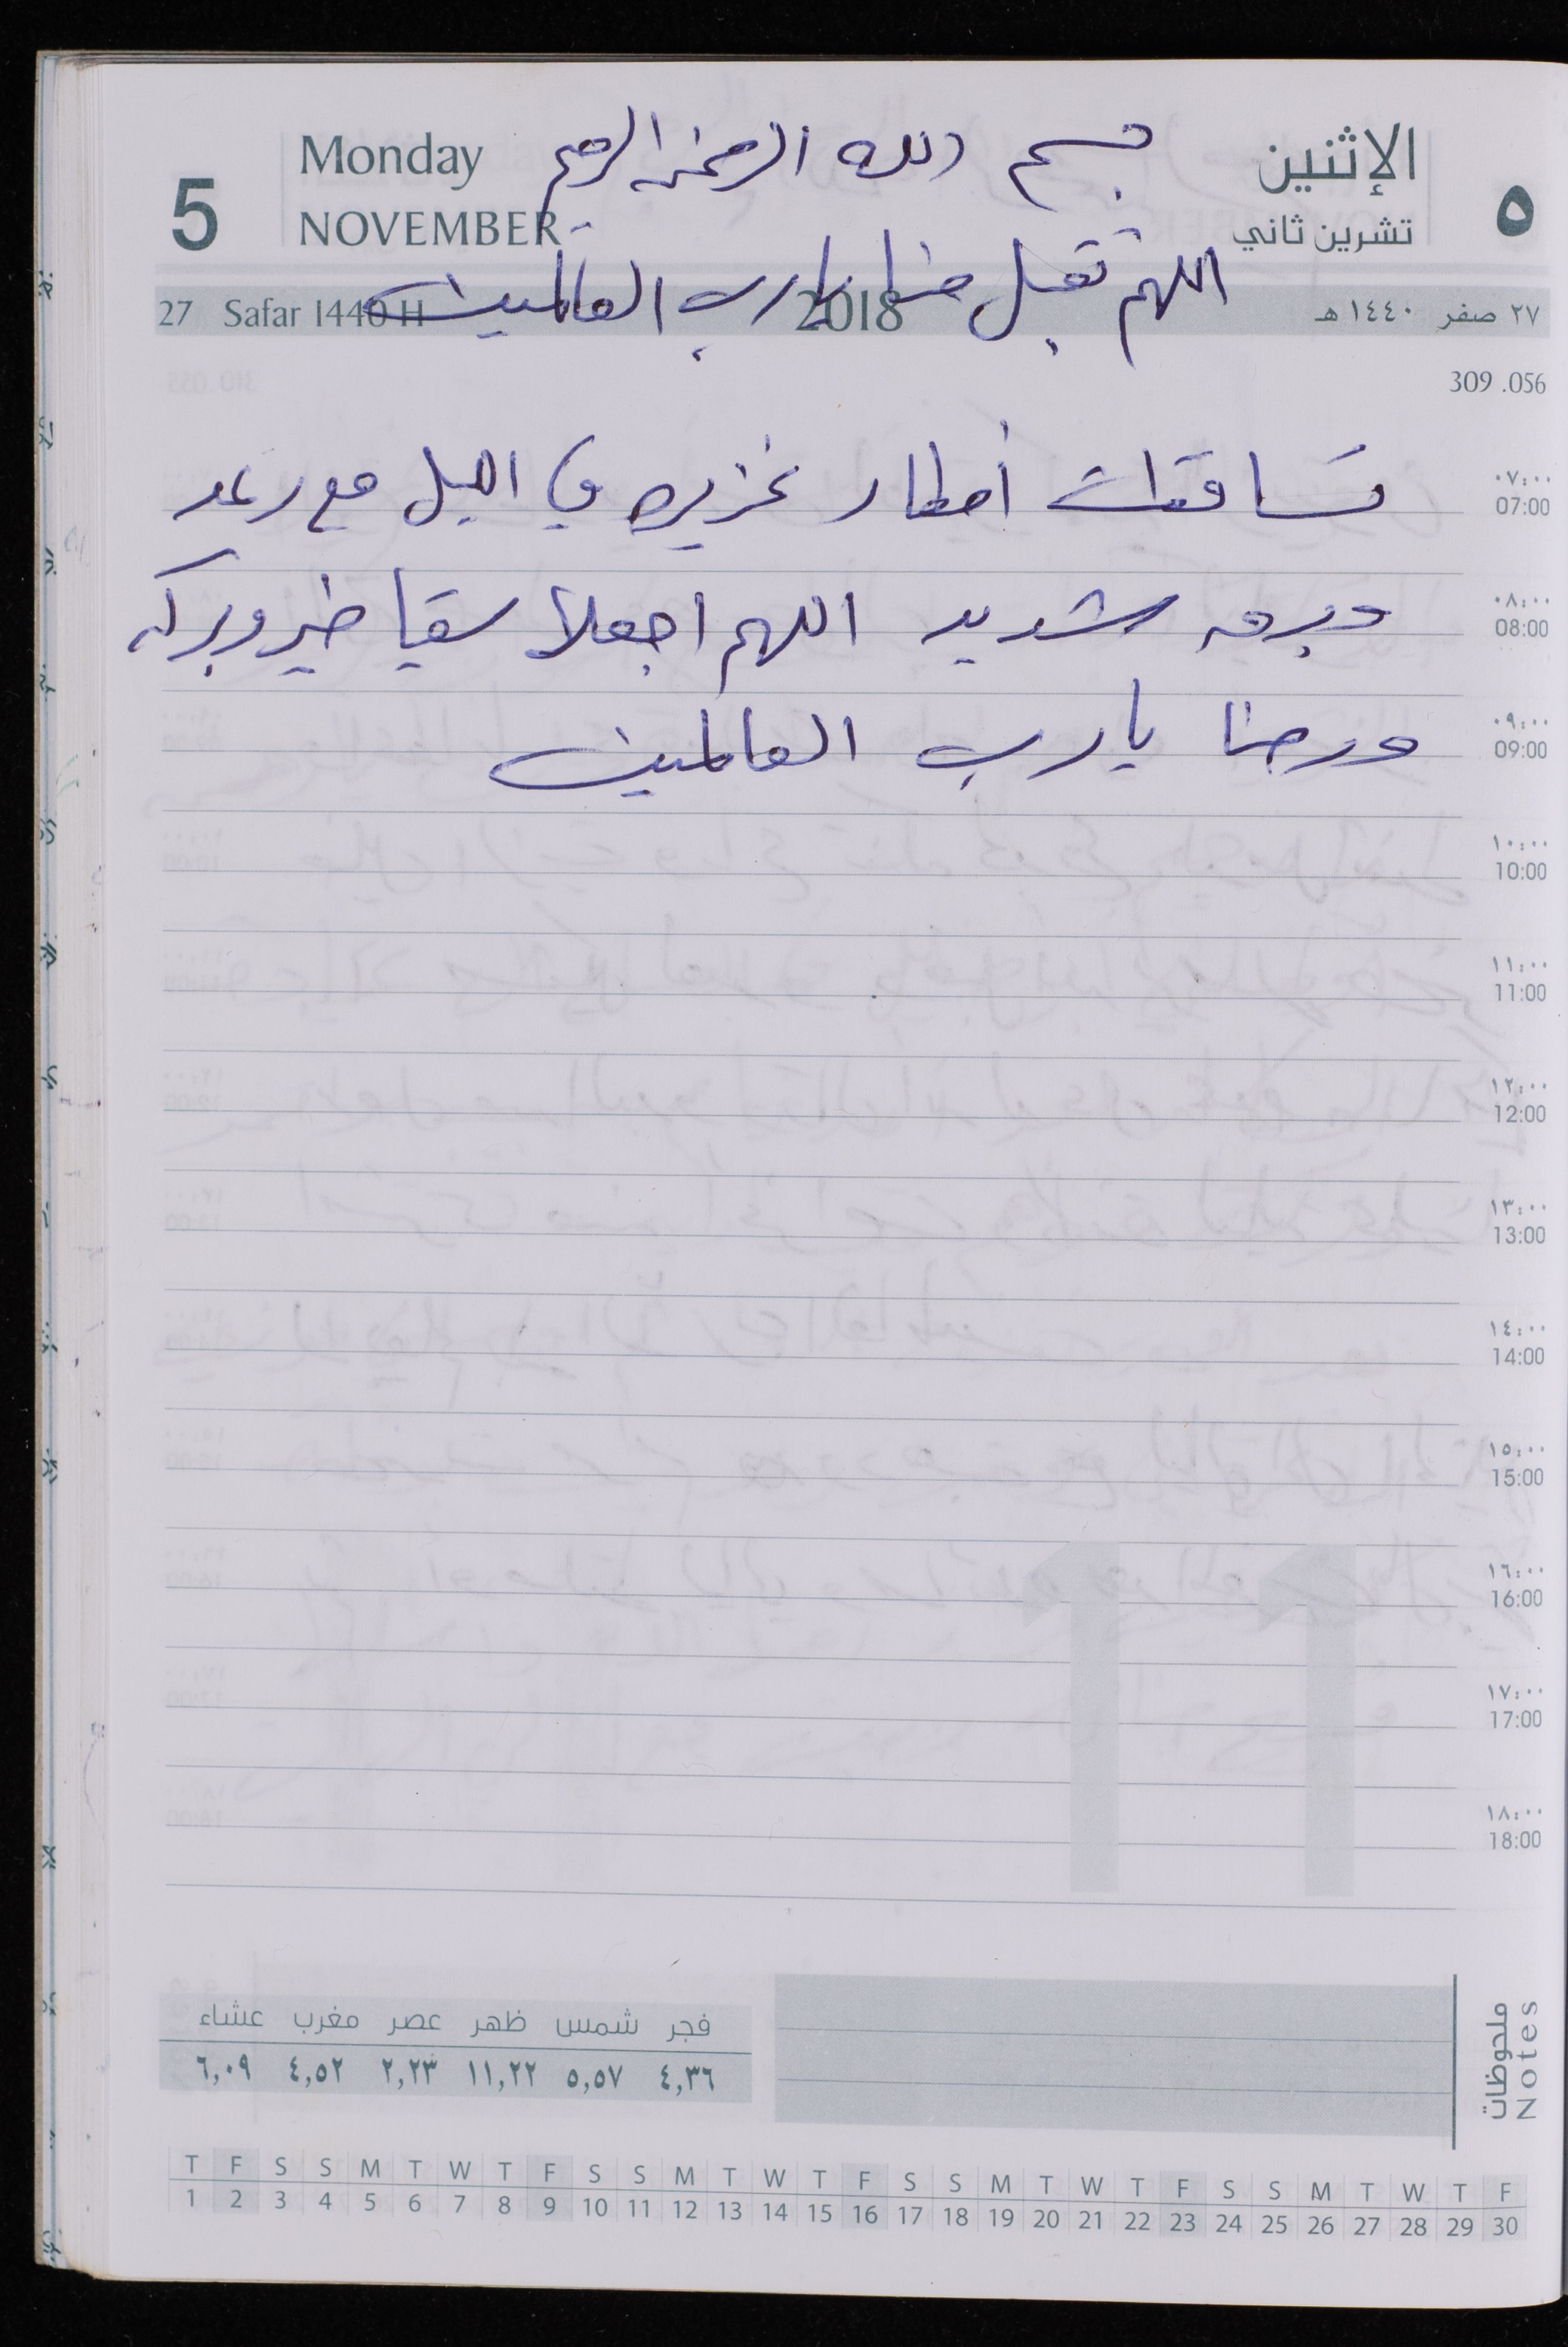 5 Monday بسم الله الرحمن الرحيم الإثنين ٥
NOVEMBER تشرين ثاني
اللهم تقبل منا يارب العالمين
27 Safar 1440 H 2018 ٢٧ صفر ١٤٤٠ هـ
309 .056
تساقطت أمطار غزيره في اليل مع رعد
٠٧:٠٠
07:00
وبرق شديد اللهم اجعلا سقيا خير وبركه
٠٨:٠٠
08:00
ورضا يارب العالمين
٠٩:٠٠
09:00
١٠:٠٠
10:00
١١:٠٠
11:00
١٢:٠٠
12:00
١٣:٠٠
13:00
١٤:٠٠
14:00
١٥:٠٠
15:00
١٦:٠٠
16:00
١٧:٠٠
17:00
١٨:٠٠
18:00
11
ملحوظات
Notes
فجر شمس ظهر عصر مغرب عشاء
٤,٣٦ ٥,٥٧ ١١,٢٢ ٢,٢٣ ٤,٥٢ ٦,٠٩
T F S S M T W T F S S M T W T F S S M T W T F S S M T W T F
1 2 3 4 5 6 7 8 9 10 11 12 13 14 15 16 17 18 19 20 21 22 23 24 25 26 27 28 29 30